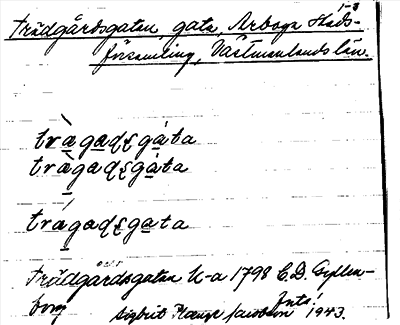 1-3
Trädgårdsgatan, gata, Arboga Stads-
församling, Västmanlands län.
trägadsgáta
trägadsgáta
trágadsgata
Trädgårdsgatan K-a 1798 C.D. Gyllen-
borg
Sigbrit Jacobson 1943.